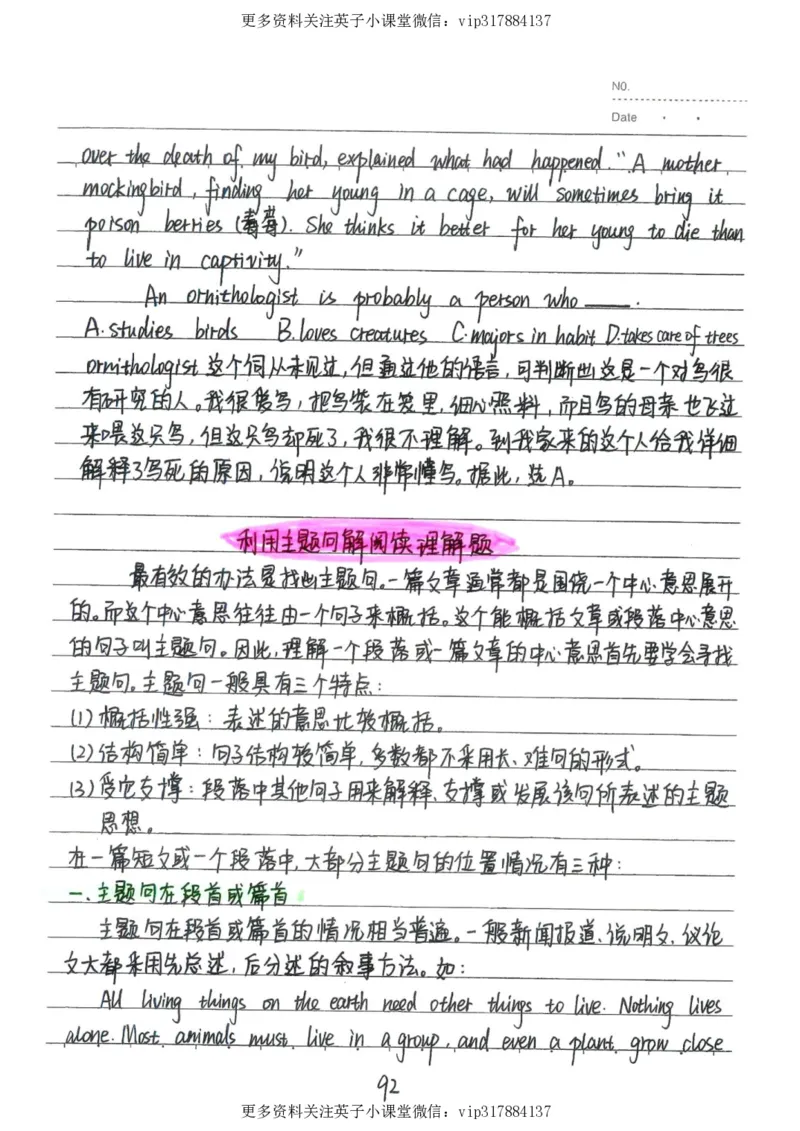 更多资料关注英子小课堂微信：vip317884137
NO.
Date
over the death of my bird, explained what had happened. "A mother
mockingbird, finding her young in a cage, will sometimes bring it
poison berries (莓莓). She thinks it better for her young to die than
to live in captivity."
An ornithologist is probably a person who ____.
A.studies birds B.loves creatures C.majors in habit D.takes care of trees
ornithologist 这个词从未见过,但通过他的语言,可判断出这是一个对鸟很
有研究的人。我很爱鸟,把鸟装在笼里,细心照料,而且鸟的母亲也飞过
来喂这只鸟,但这只鸟却死了,我很不理解。到我家来的这个人给我详细
解释了鸟死的原因,说明这个人非常懂鸟。据此,选A。
利用主题句解阅读理解题
最有效的办法是找出主题句。一篇文章通常都是围绕一个中心意思展开
的。而这个中心意思往往由一个句子来概括。这个能概括文章或段落中心意思
的句子叫主题句。因此,理解一个段落或一篇文章的中心意思首先要学会寻找
主题句。主题句一般具有三个特点:
(1)概括性强:表述的意思比较概括。
(2)结构简单:句子结构较简单,多数都不采用长、难句的形式。
(3)受它支撑:段落中其他句子用来解释、支撑或发展该句所表述的主题
思想。
在一篇短文或一个段落中,大部分主题句的位置情况有三种:
一、主题句在段首或篇首
主题句在段首或篇首的情况相当普遍。一般新闻报道、说明文、议论
文大都采用先总述,后分述的叙事方法。如:
All living things on the earth need other things to live. Nothing lives
alone. Most animals must live in a group, and even a plant grow close
92
更多资料关注英子小课堂微信：vip317884137